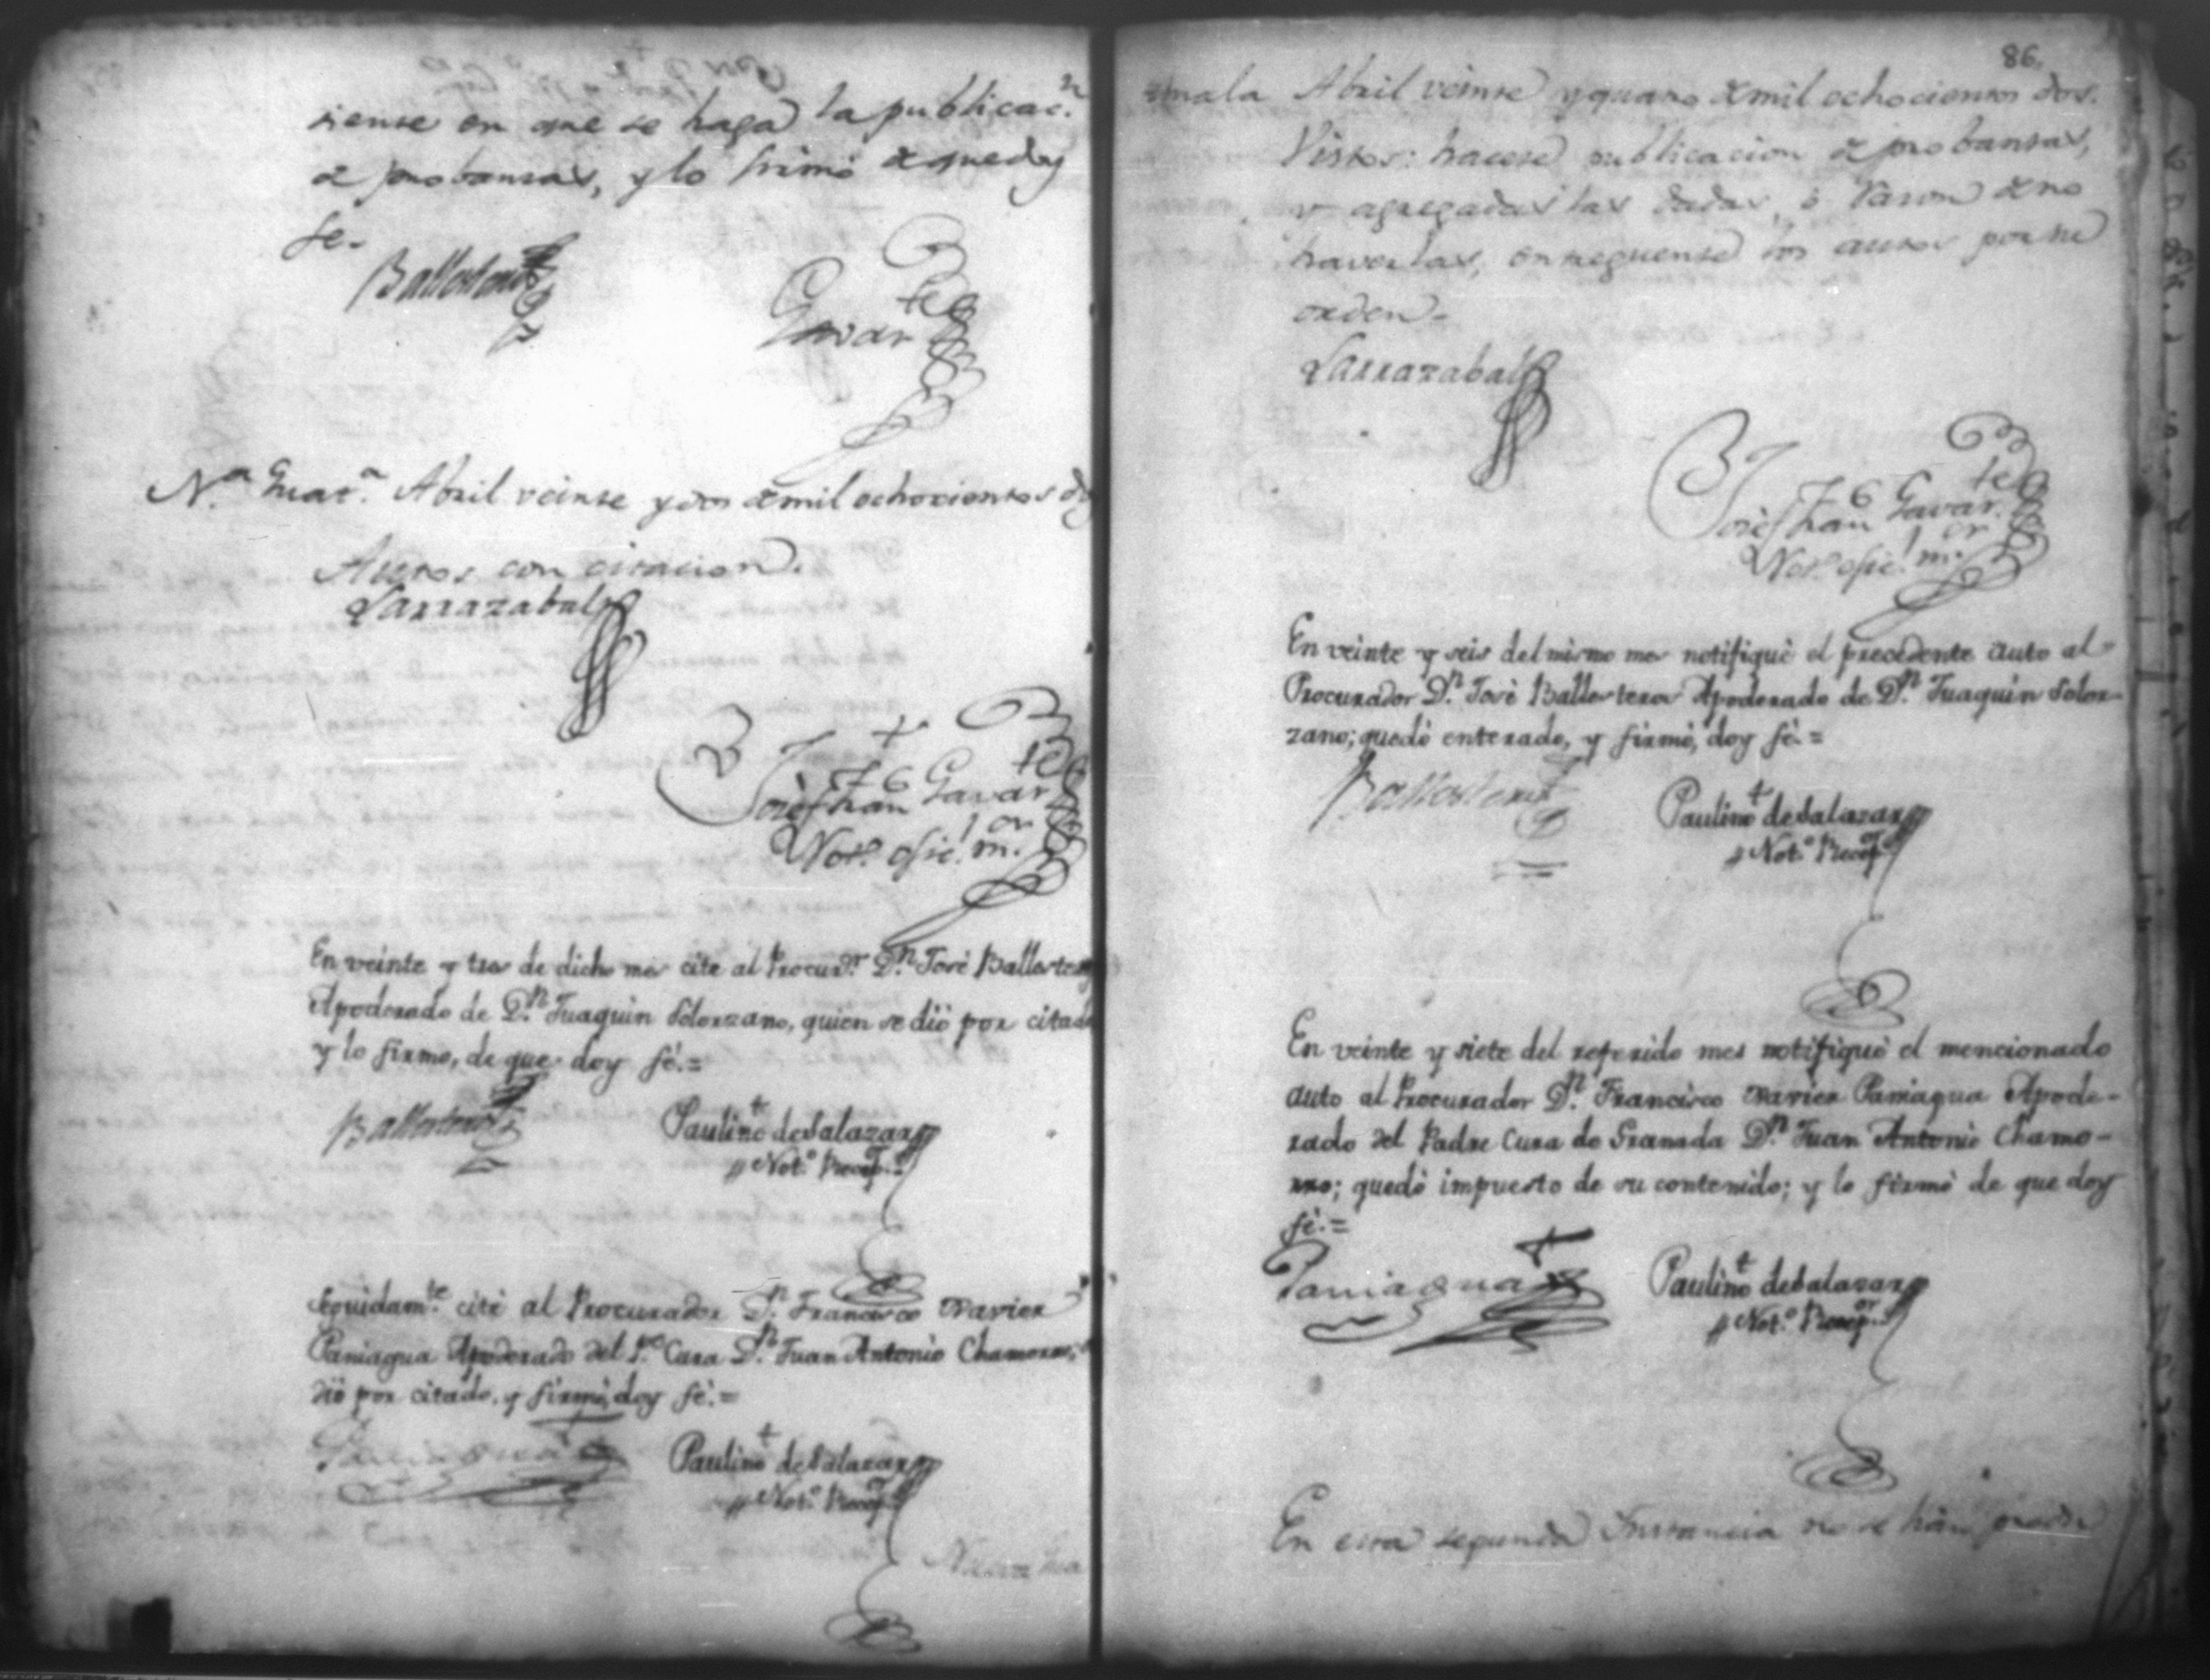 siente en que se haga la publicac.n
de probanzas, y lo firmó de que doy
fe.
Ballesteros
Gavarte
N.a Guat.a Abril veinte y dos de mil ochocientos dos
Autos con citacion.
Larrazabal
Not.o ofic.l m.or
En veinte y tres de dicho mes cité al Procur.or D.n José Ballesteros
Apoderado de D.n Juaquin Solorzano, quien se dió por citado
y lo firmo, de que doy fé.=
Ballesteros
Paulino de Salazar
Not.o Recep.or
Seguidam.te cité al Procurador D.n Francisco Xavier
Paniagua Apoderado del P.e Cura D.n Juan Antonio Chamorro;
dió por citado, y firmó, doy fé.=
Paniagua
Paulino de Salazar
Not.o Recep.or
Nueva Gua
86.
temala Abril veinte y quatro de mil ochocientos dos.
Vistos: hacese publicacion de probanzas,
y agregadas las dadas, ó razon de no
haverlas, entreguense los autos por su
orden.
Larrazabal
Not.o ofic.l m.or
En veinte y seis del mismo mes notifiqué el precedente auto al
Procurador D.n José Ballesteros Apoderado de D.n Juaquin Solor-
zano; quedó enterado, y firmó, doy fé.=
Ballesteros
Paulino de Salazar
Not.o Recep.or
En veinte y siete del referido mes notifiqué el mencionado
auto al Procurador D.n Francisco Xavier Paniagua Apode-
rado del Padre Cura de Granada D.n Juan Antonio Chamo-
rro; quedó impuesto de su contenido; y lo firmó de que doy
fé.=
Paniagua
Paulino de Salazar
Not.o Recep.or
En esta segunda Instancia no se han